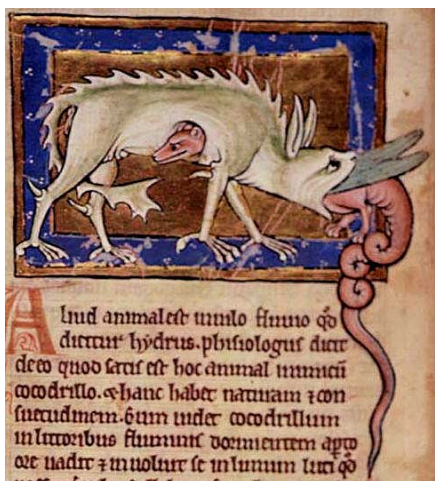 Aliud animal est in nilo fluuio qd̄
dicitur hydrus. phisiologus dicit
de eo quod satis est hoc animal inimicū
cocodrillo. & hanc habet naturam ⁊ con
suetudinem. Cum uidet cocodrillum
in littoribus fluminis dormientem aꝑto
ore uadit ⁊ inuoluit se in limum luti qd̄